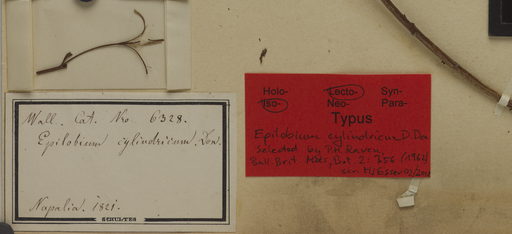 Wall. Cat. No. 6328.
Epilobium cylindricum. Don.
Napalia. 1821.
SCHULTES
Holo- Lecto- Syn-
Iso- Neo- Para-
Typus
Epilobium cylindricum D. Don
selected by P.H. Raven
Bull. Brit. Mus., Bot. 2: 356 (1962)